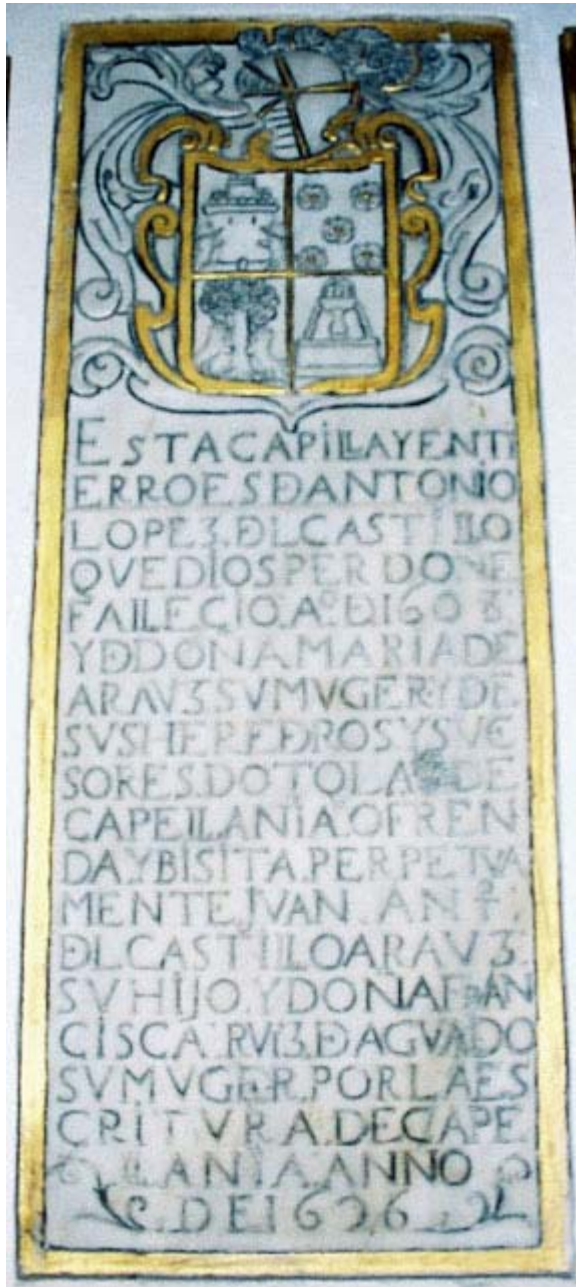 ESTA CAPILLA Y ENTI
ERRO ES Đ ANTONIO
LOPEZ. ĐL CASTILLO
QVE DIOS PERDONE
FALLECIO. Aº. Đ 1603
Y Đ DOÑA MARIA DE
ARAVZ SV MVGER. Y DE
SVS HEREĐROS Y SVCE
SORES. DOTOLA DE
CAPELLANIA OFREN
DA Y BISITA. PERPETVA
MENTE JVAN. ANº.
ĐL CASTILLO ARAVZ.
SV HIJO. Y DOÑA FRAN
CISCA. RVIZ. Đ AGVADO
SV MVGER. POR LA ES
CRITVRA. DE CAPE
LLANIA. ANNO
DE 1626